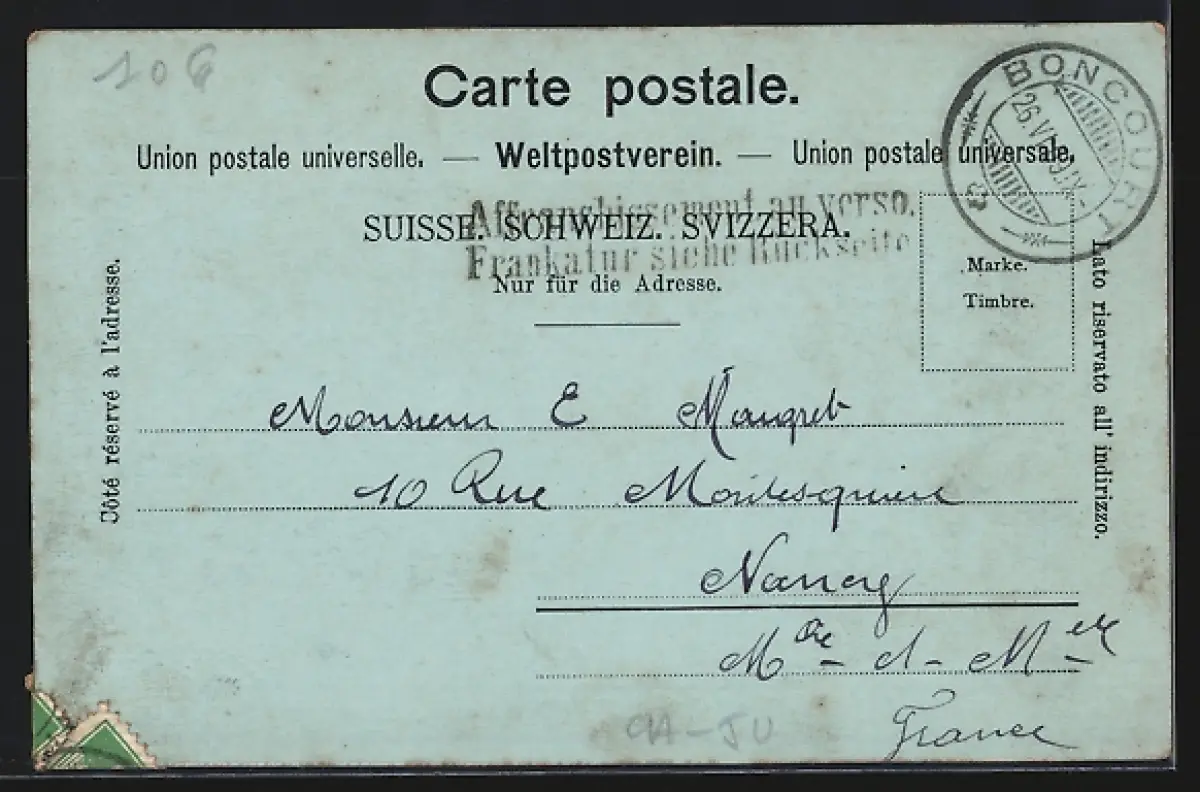 10 G
Carte postale.
Union postale universelle. — Weltpostverein. — Union postale universale.
Affranchissement au verso.
SUISSE. SCHWEIZ. SVIZZERA.
Frankatur siehe Rückseite
Nur für die Adresse.
BONCOURT
26.VI
Marke.
Timbre.
Côté réservé à l'adresse.
Lato riservato all' indirizzo.
Monsieur E Maugret
10 Rue Montesquieu
Nancy
Mthe - et - Mlle
France
CH-JU